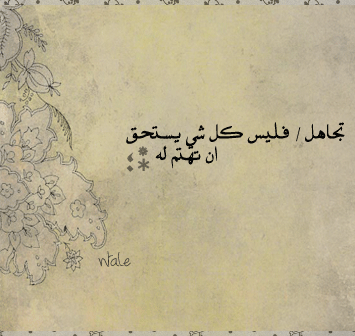 تجاهل / فليس كل شي يستحق
ان تهتم له
ntale